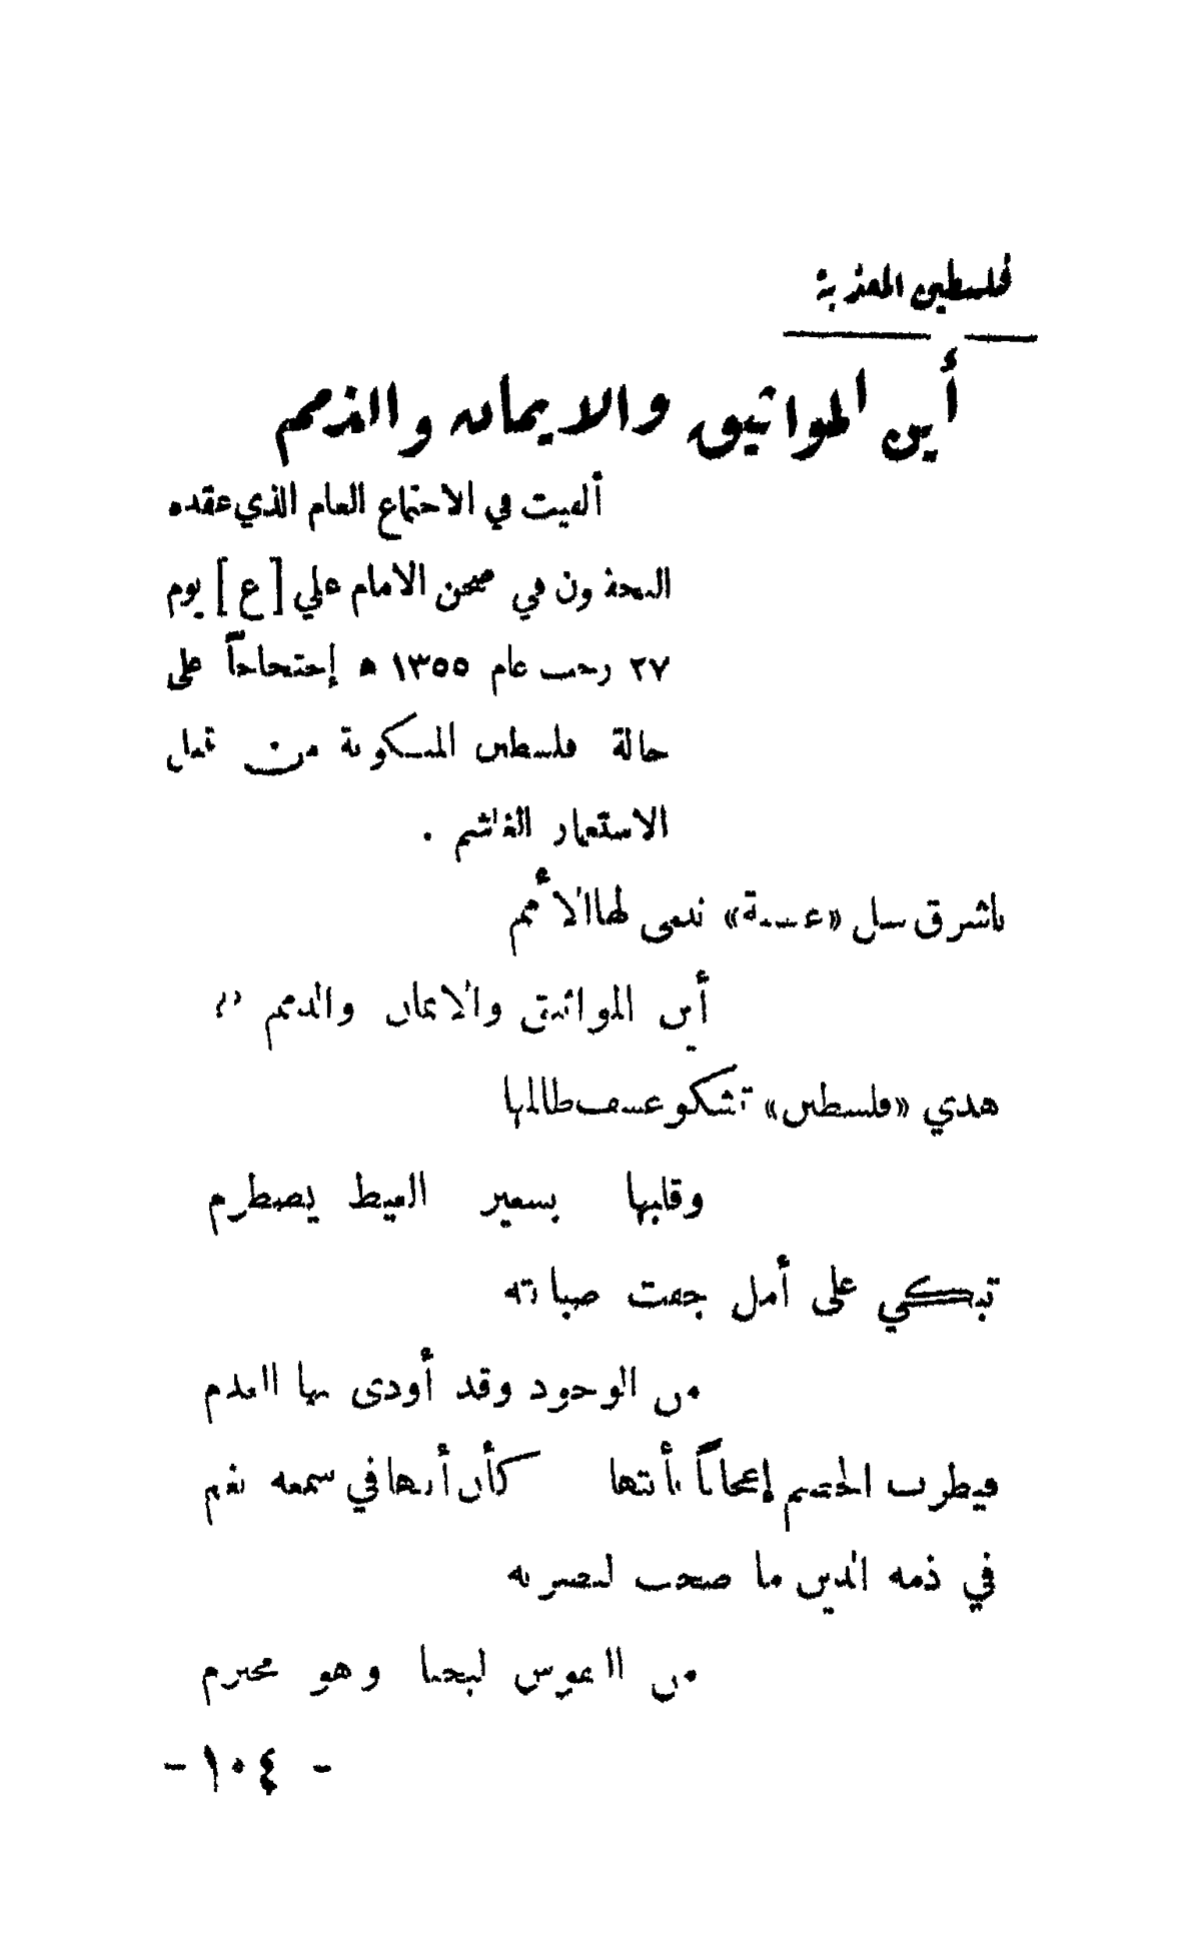 فلسطين المعذبة
أين المواثيق والايمان والذمم
ألقيت في الاجتماع العام الذي عقده
النجفيون في صحن الامام علي [ع] يوم
٢٧ رجب عام ١٣٥٥ ه إحتجاجاً على
حالة فلسطين المنكوبة من قبل
الاستعمار الغاشم .
ياشرق سل «عصبة» تدعى لها الأمم
أين المواثيق والايمان والذمم ؟؟
هذي «فلسطين» تشكو عسف ظالمها
وقلبها بسعير الغيظ يضطرم
تبكي على أمل جفت صبابته
من الوجود وقد أودى بها العدم
فيطرب الخصم إعجاباً بأنتها كأن أرها في سمعه نغم
في ذمة الدين ما ضحت لنصرته
من النفوس لتحيا وهو محترم
- ١٠٤ -